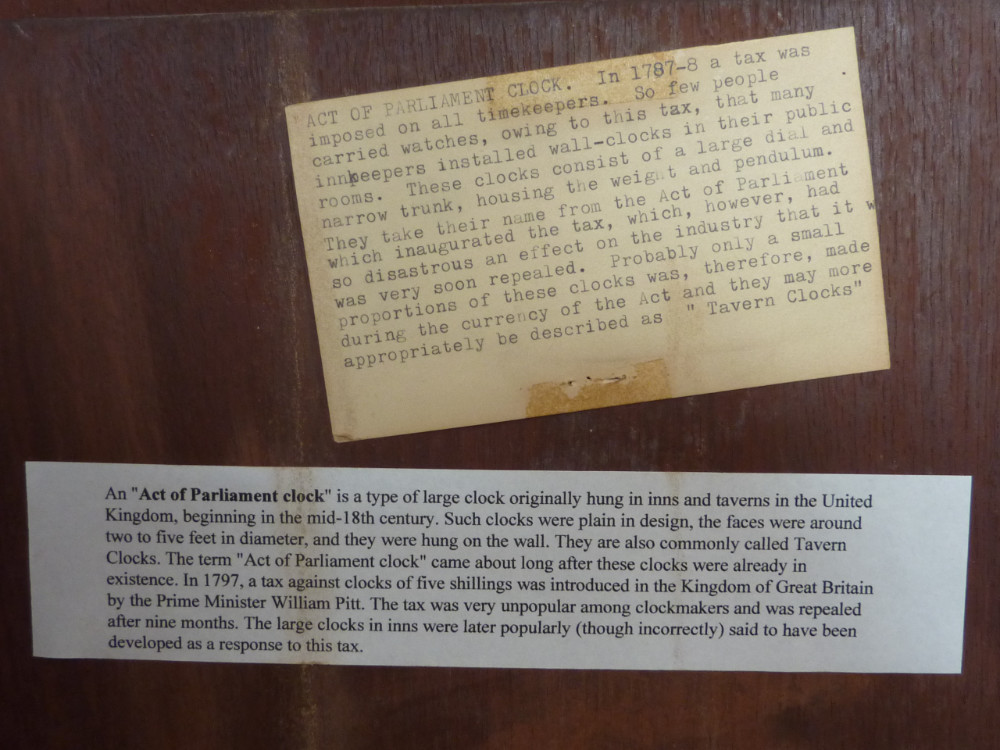 ACT OF PARLIAMENT CLOCK. In 1787-8 a tax was
imposed on all timekeepers. So few people
carried watches, owing to this tax, that many
innkeepers installed wall-clocks in their public
rooms. These clocks consist of a large dial and
narrow trunk, housing the weight and pendulum.
They take their name from the Act of Parliament
which inaugurated the tax, which, however, had
so disastrous an effect on the industry that it w
was very soon repealed. Probably only a small
proportions of these clocks was, therefore, made
during the currency of the Act and they may more
appropriately be described as " Tavern Clocks"
An "Act of Parliament clock" is a type of large clock originally hung in inns and taverns in the United
Kingdom, beginning in the mid-18th century. Such clocks were plain in design, the faces were around
two to five feet in diameter, and they were hung on the wall. They are also commonly called Tavern
Clocks. The term "Act of Parliament clock" came about long after these clocks were already in
existence. In 1797, a tax against clocks of five shillings was introduced in the Kingdom of Great Britain
by the Prime Minister William Pitt. The tax was very unpopular among clockmakers and was repealed
after nine months. The large clocks in inns were later popularly (though incorrectly) said to have been
developed as a response to this tax.